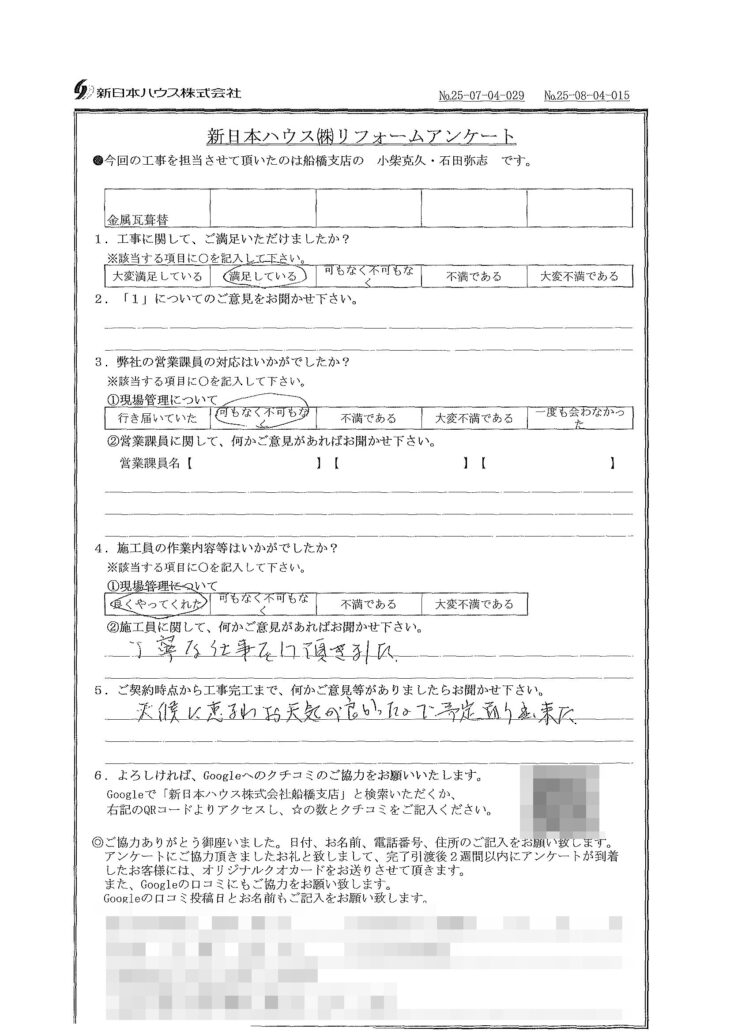 新日本ハウス株式会社
№25-07-04-029 №25-08-04-015
新日本ハウス㈱リフォームアンケート
●今回の工事を担当させて頂いたのは船橋支店の 小柴克久・石田弥志 です。
金属瓦葺替
1．工事に関して、ご満足いただけましたか？
※該当する項目に○を記入して下さい。
大変満足している 満足している 可もなく不可もなく 不満である 大変不満である
2．「1」についてのご意見をお聞かせ下さい。
3．弊社の営業課員の対応はいかがでしたか？
※該当する項目に○を記入して下さい。
①現場管理について
行き届いていた 可もなく不可もなく 不満である 大変不満である 一度も会わなかった
②営業課員に関して、何かご意見があればお聞かせ下さい。
営業課員名【 】【 】【 】
4．施工員の作業内容等はいかがでしたか？
※該当する項目に○を記入して下さい。
①現場管理について
良くやってくれた 可もなく不可もなく 不満である 大変不満である
②施工員に関して、何かご意見があればお聞かせ下さい。
丁寧な仕事をして頂きました
5．ご契約時点から工事完工まで、何かご意見等がありましたらお聞かせ下さい。
天候に恵まれお天気が良かったので予定通り出来た
6．よろしければ、Googleへのクチコミのご協力をお願いいたします。
Googleで「新日本ハウス株式会社船橋支店」と検索いただくか、
右記のQRコードよりアクセスし、☆の数とクチコミをご記入ください。
◎ご協力ありがとう御座いました。日付、お名前、電話番号、住所のご記入をお願い致します。
アンケートにご協力頂きましたお礼と致しまして、完了引渡後２週間以内にアンケートが到着
したお客様には、オリジナルクオカードをお送りさせて頂きます。
また、Googleの口コミにもご協力をお願い致します。
Googleの口コミ投稿日とお名前もご記入をお願い致します。